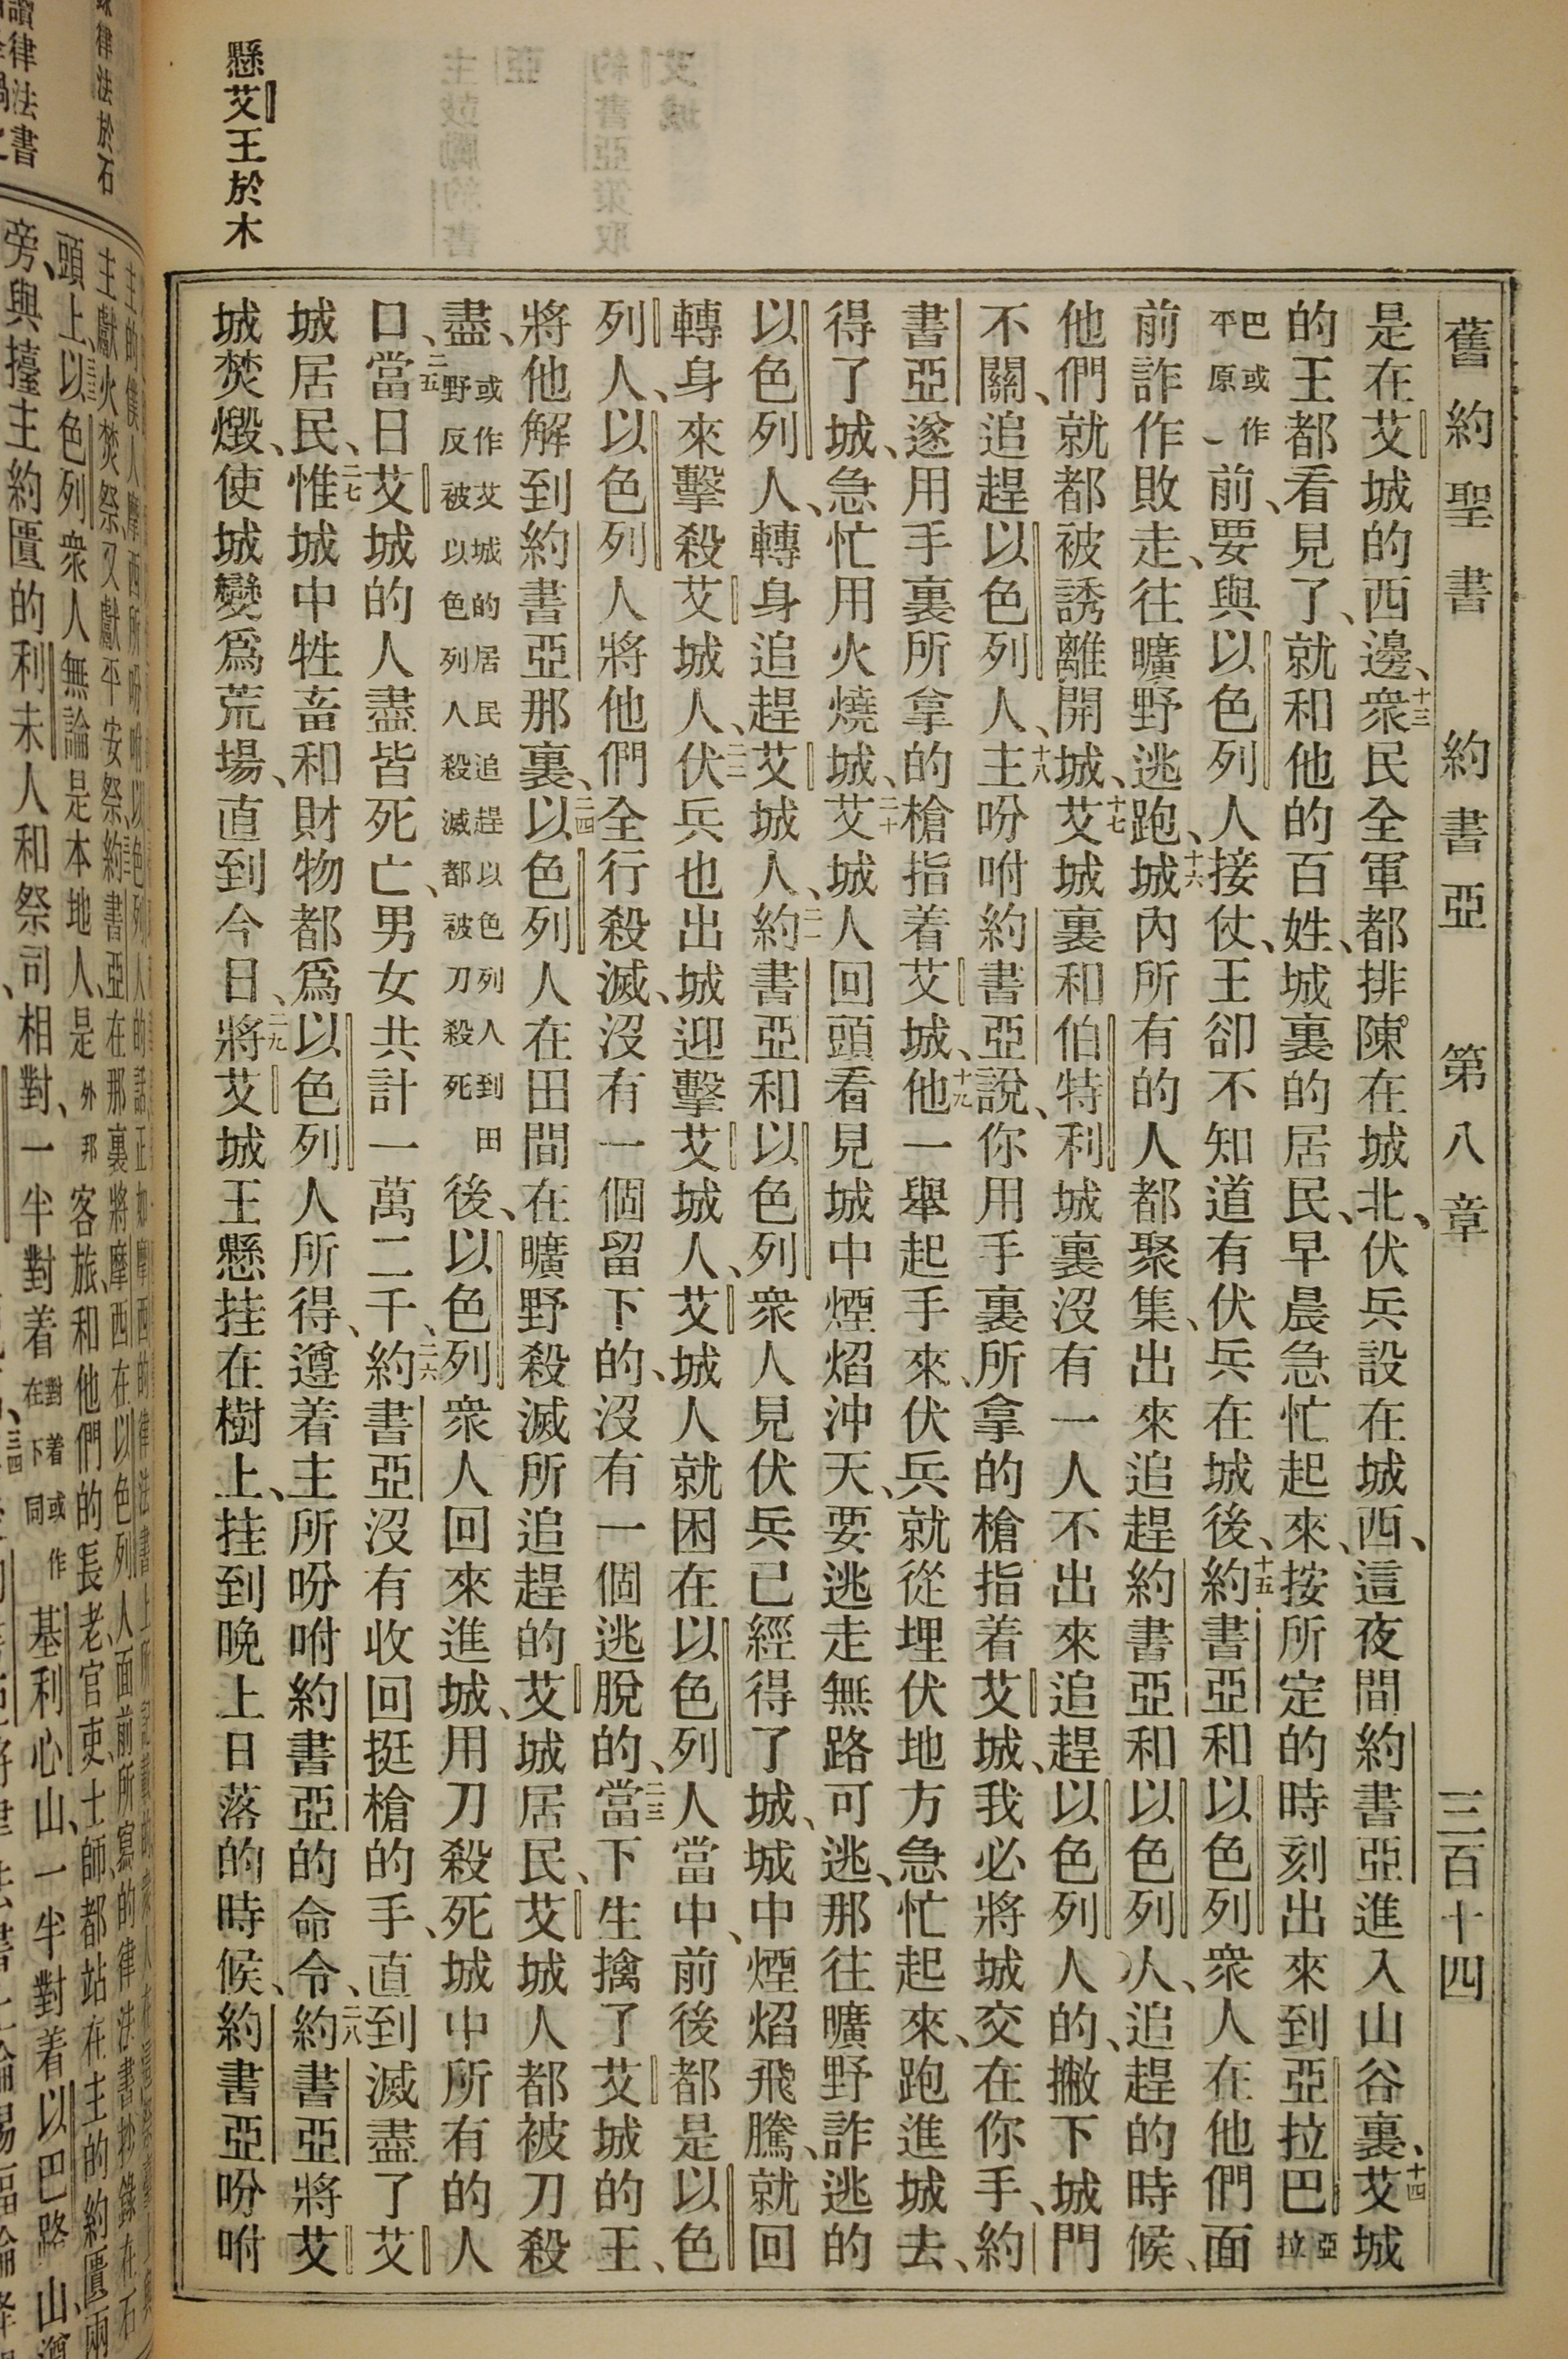 舊約聖書 約書亞 第八章 三百十四
是在艾城的西邊、十三衆民全軍都排陳在城北、伏兵設在城西、這夜間約書亞進入山谷裏、十四艾城
的王都看見了、就和他的百姓、城裏的居民、早晨急忙起來、按所定的時刻出來到亞拉巴亞拉
巴或作平原前、要與以色列人接仗、王卻不知道有伏兵在城後、十五約書亞和以色列衆人在他們面
前詐作敗走、往曠野逃跑、十六城內所有的人都聚集、出來追趕約書亞和以色列人、追趕的時候、
他們就都被誘離開城、十七艾城裏和伯特利城裏沒有一人不出來追趕以色列人的、撇下城門
不關、追趕以色列人、十八主吩咐約書亞說、你用手裏所拿的槍指着艾城、我必將城交在你手、約
書亞遂用手裏所拿的槍指着艾城、十九他一舉起手來、伏兵就從埋伏地方急忙起來、跑進城去、
得了城、急忙用火燒城、二十艾城人回頭看見城中煙焰沖天、要逃走無路可逃、那往曠野詐逃的
以色列人、轉身追趕艾城人、二一約書亞和以色列衆人見伏兵已經得了城、城中煙焰飛騰、就回
轉身來擊殺艾城人、二二伏兵也出城迎擊艾城人、艾城人就困在以色列人當中、前後都是以色
列人、以色列人將他們全行殺滅、沒有一個留下的、沒有一個逃脫的、二三當下生擒了艾城的王、
將他解到約書亞那裏、二四以色列人在田間在曠野殺滅所追趕的艾城居民、艾城人都被刀殺
盡、或作艾城的居民追趕以色列人到田野反被以色列人殺滅都被刀殺死後、以色列衆人回來進城、用刀殺死城中所有的人
口、二五當日艾城的人盡皆死亡、男女共計一萬二千、二六約書亞沒有收回挺槍的手、直到滅盡了艾
城居民、二七惟城中牲畜和財物都爲以色列人所得、遵着主所吩咐約書亞的命令、二八約書亞將艾
城焚燬、使城變爲荒場、直到今日、二九將艾城王懸挂在樹上、挂到晚上日落的時候、約書亞吩咐
懸艾王於木
律法於石
讀律法書
主獻火焚祭、又獻平安祭、約書亞在那裏將摩西在以色列人面前所寫的律法書抄錄在石
頭上、以色列衆人無論是本地人、是外邦客旅、和他們的長老、官吏、士師、都站在主的約匱兩
旁、與擡主約匱的利未人和祭司相對、一半對着對着或作在下同基利心山、一半對着以巴路山、